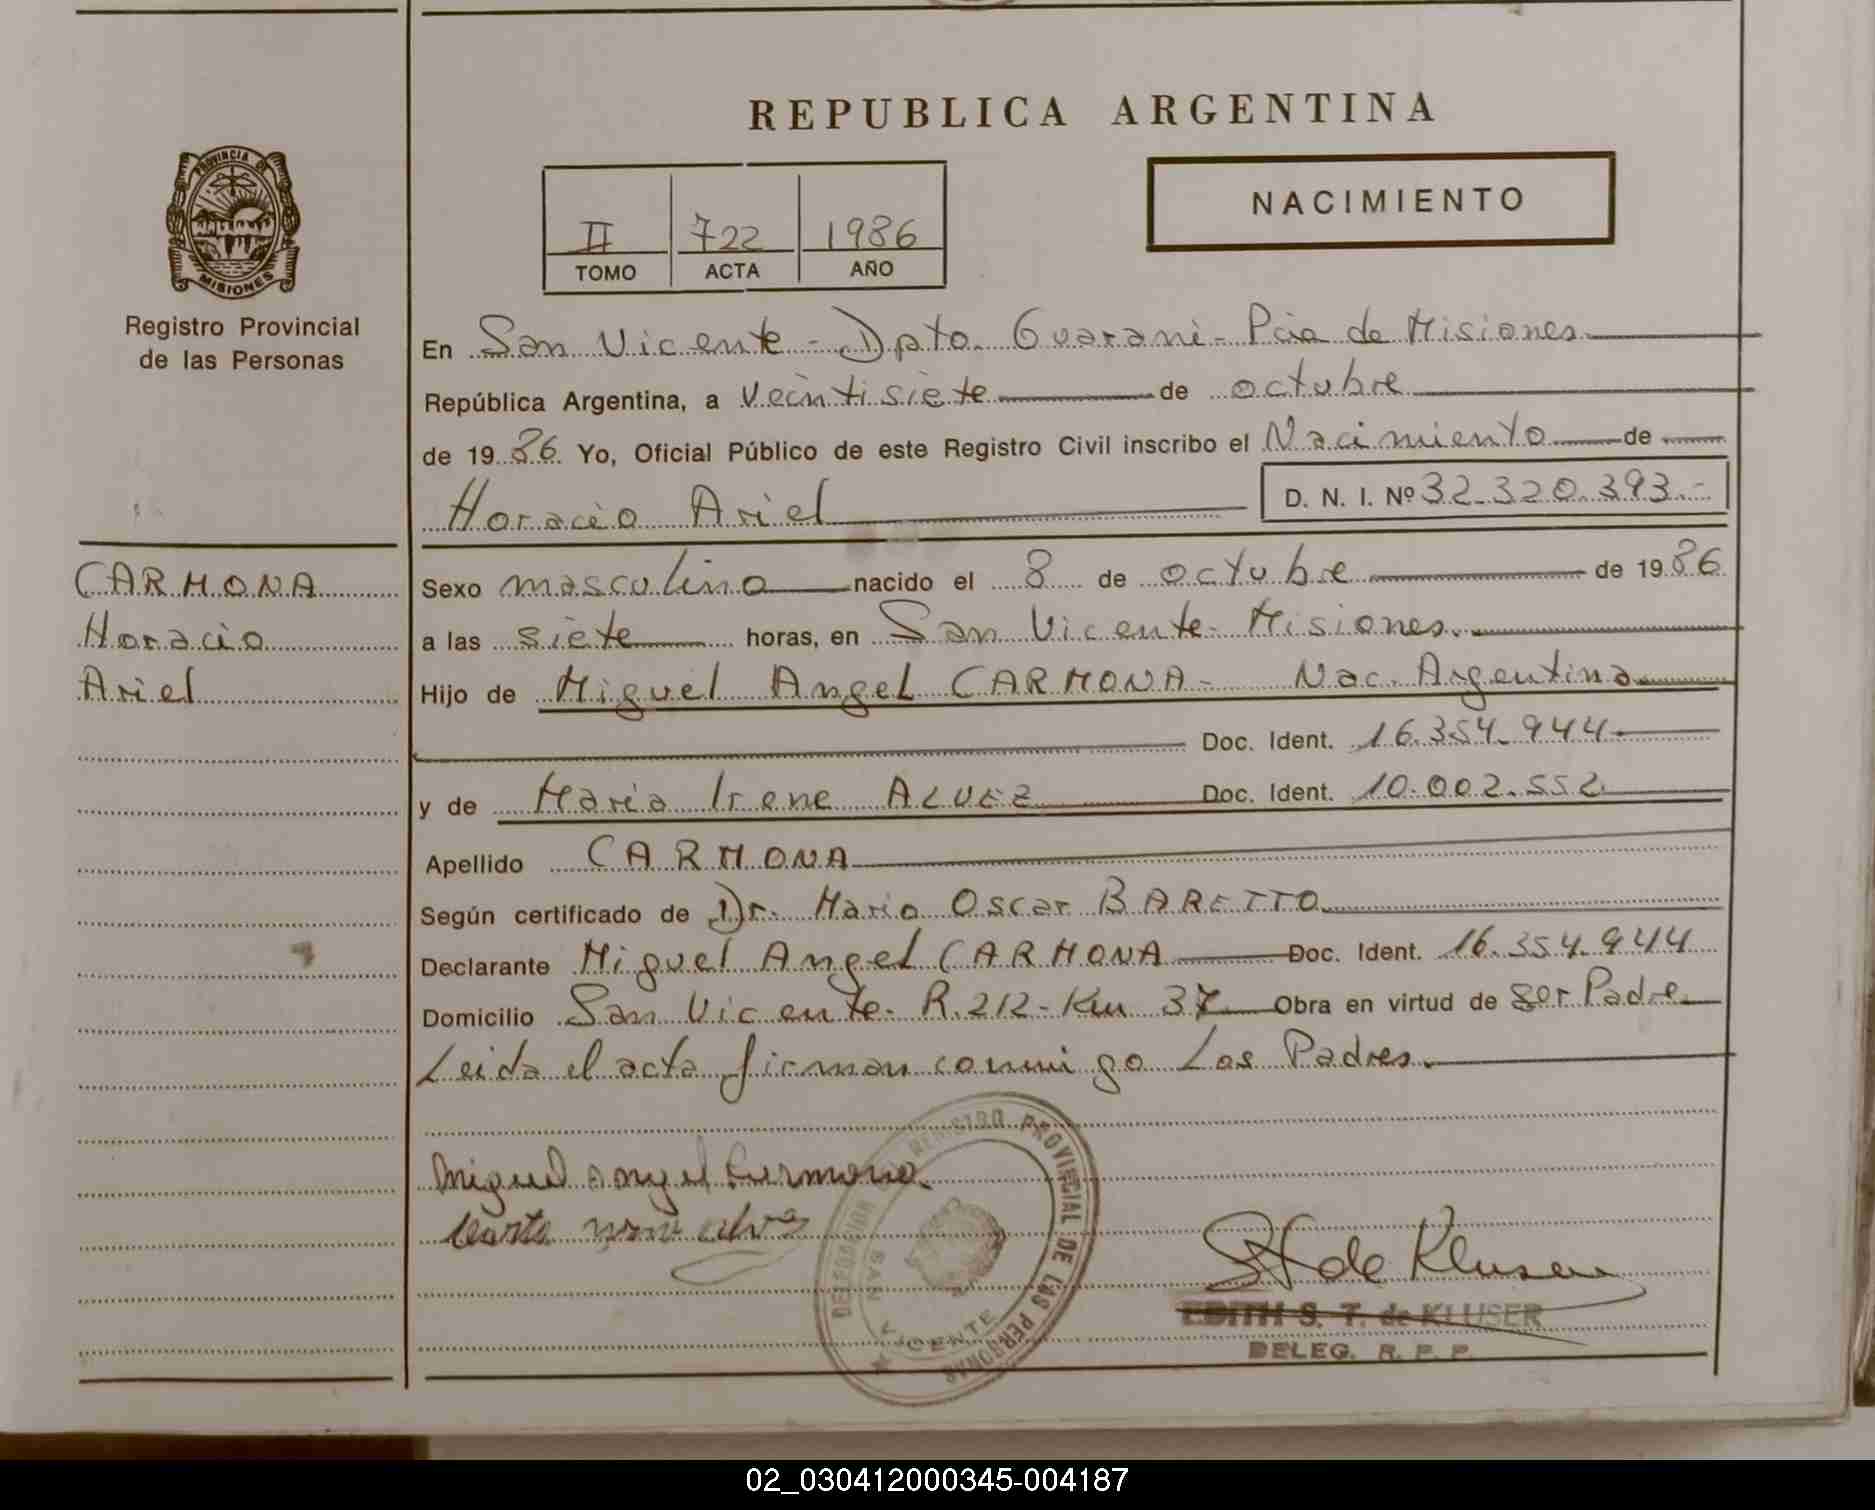 REPUBLICA ARGENTINA
PROVINCIA DE
MISIONES
Registro Provincial
de las Personas
NACIMIENTO
II 722 1986
TOMO ACTA AÑO
En San Vicente - Dpto. Guarani - Pcia de Misiones
República Argentina, a veintisiete de octubre
de 1986 Yo, Oficial Público de este Registro Civil inscribo el Nacimiento de
Horacio Ariel D. N. I. Nº 32.320.393.-
CARMONA
Horacio
Ariel
Sexo masculino nacido el 8 de octubre de 1986
a las siete horas, en San Vicente - Misiones.
Hijo de Miguel Angel CARMONA - Nac. Argentina
Doc. Ident. 16.354.944
y de Maria Irene ALVEZ Doc. Ident. 10.002.552
Apellido CARMONA
Según certificado de Dr. Mario Oscar BARETTO
Declarante Miguel Angel CARMONA Doc. Ident. 16.354.944
Domicilio San Vicente - R.212 - Km 37 Obra en virtud de ser Padre
Leida el acta firman conmigo Los Padres.
Miguel Angel Carmona
DELEGACION REGISTRO PROVINCIAL DE LAS PERSONAS
SAN VICENTE
de Kluser
EDITH S. T. de KLUSER
DELEG. R. P. P.
02_030412000345-004187